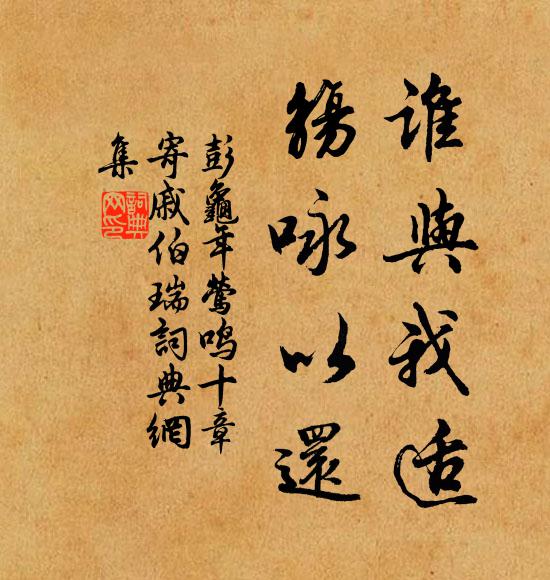 誰與我适
觴咏以還
彭龜年鶯鳴十章
寄戚伯瑞詞典網
集
詞典網印